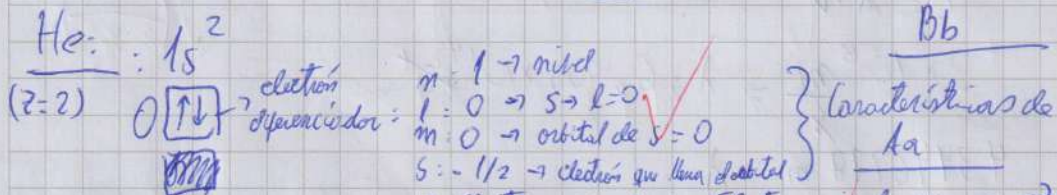 He: : 1s²
(Z=2)
0 ↑↓ → electrón diferenciador:
n: 1 → nivel
l: 0 → s → l=0
m: 0 → orbital de s = 0
s: -1/2 → electrón que llena el orbital
Bb
Características de
Aa